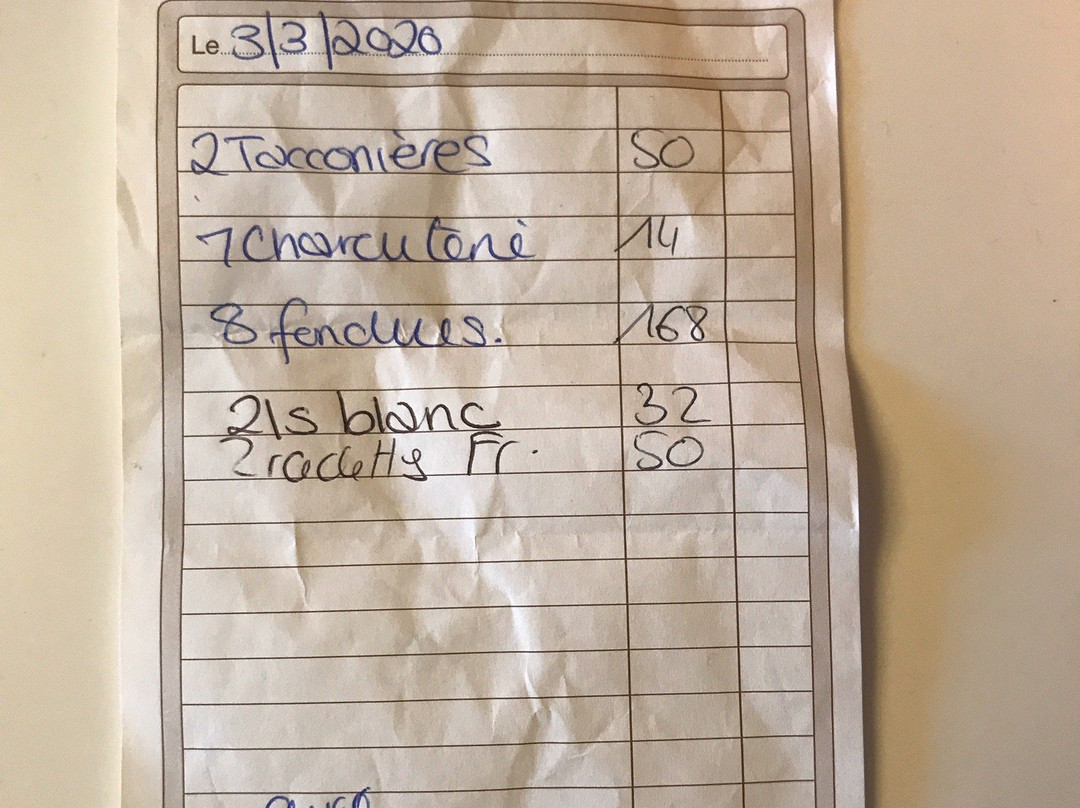 Le 3/3/2020
2 Tacconières 50
1 Charcuterie 14
8 fondues. 168
2ls blanc 32
2 raclette Fr. 50